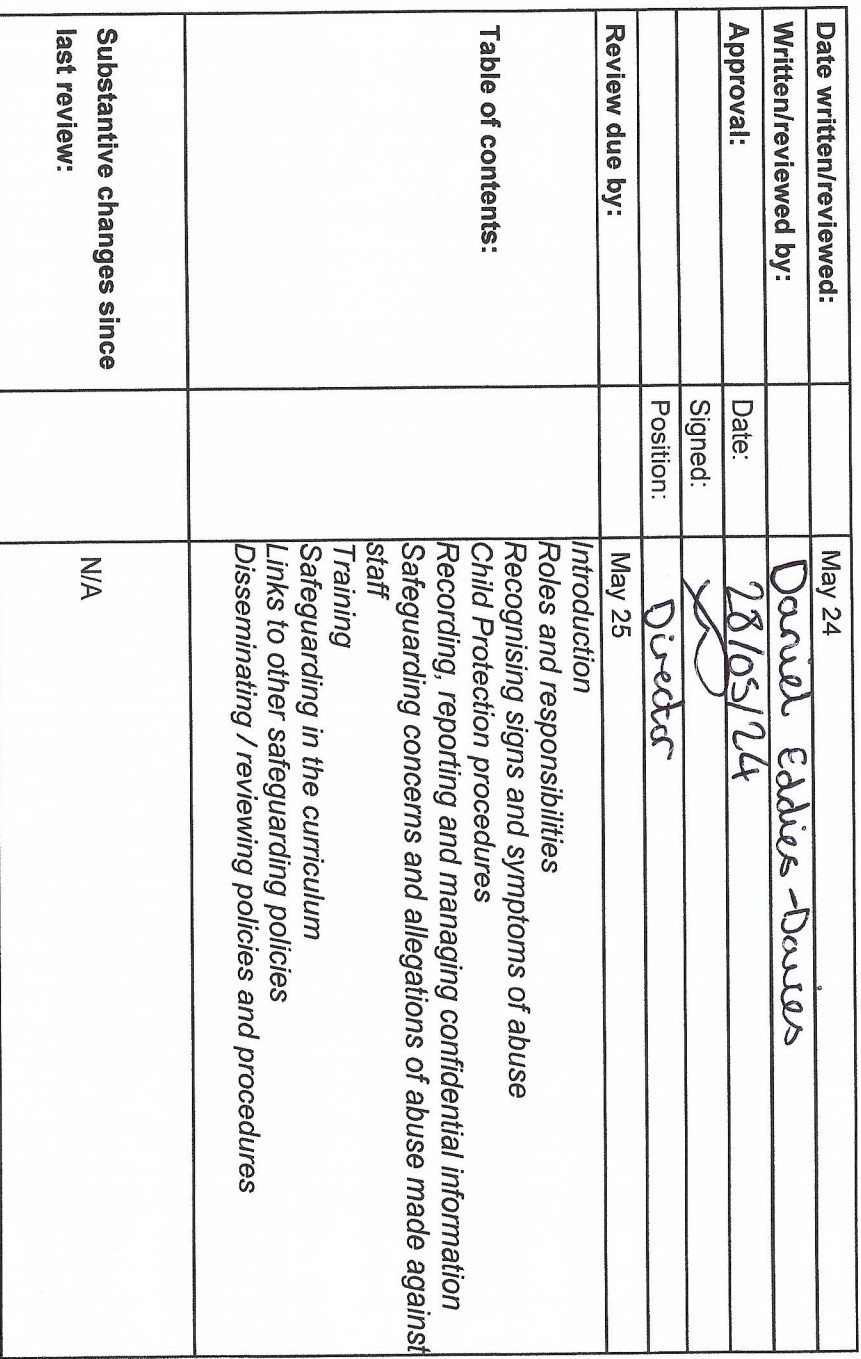 Date written/reviewed: May 24
Written/reviewed by: Daniel Eddies-Davies
Approval: Date: 28/05/24
Signed:
Position: Director
Review due by: May 25
Table of contents:
Introduction
Roles and responsibilities
Recognising signs and symptoms of abuse
Child Protection procedures
Recording, reporting and managing confidential information
Safeguarding concerns and allegations of abuse made against
staff
Training
Safeguarding in the curriculum
Links to other safeguarding policies
Disseminating / reviewing policies and procedures
Substantive changes since
last review:
N/A